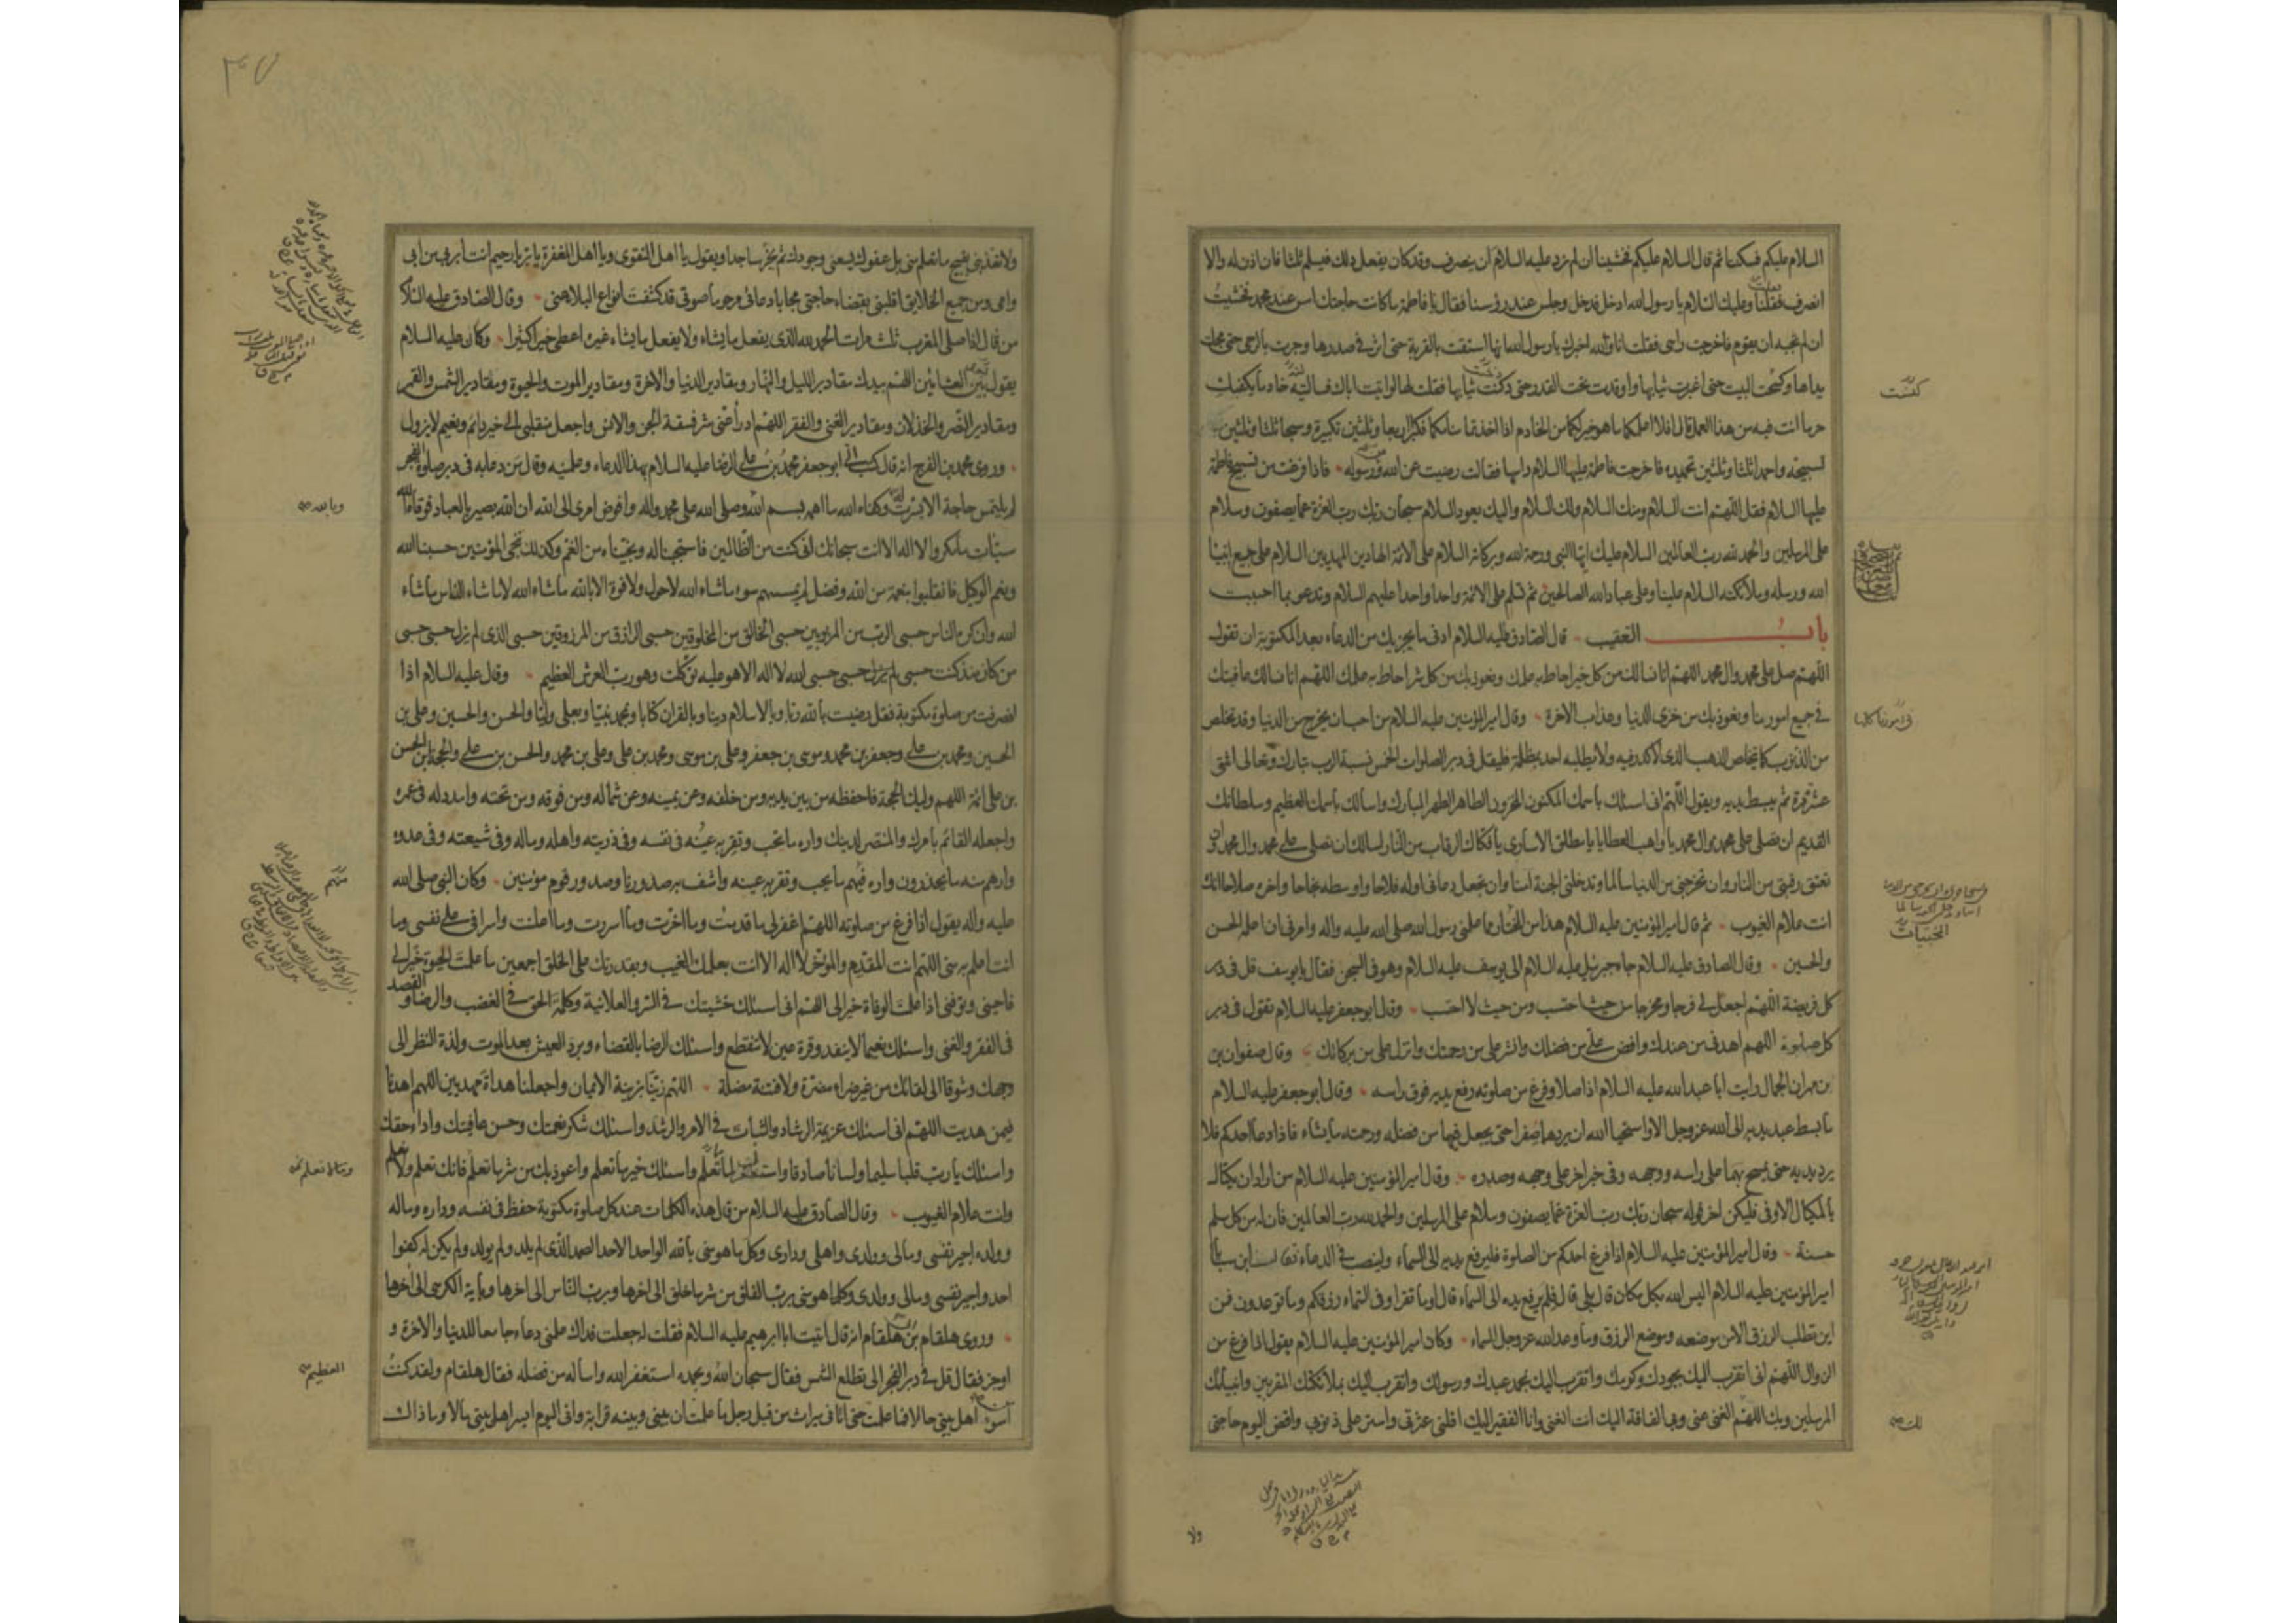 السلام عليكم فسكتنا ثم قال السلام عليكم فخشينا ان لم نرد عليه السلام ان ينصرف وقد كان يفعل ذلك فيسلم ثلثا فان اذن له والا
انصرف فقلنا وعليك السلام يا رسول الله ادخل فدخل وجلس عند رؤسنا فقال يا فاطمة ما كانت حاجتك امس عند محمد فخشيت
ان لم نجبه ان يقوم فاخرجت راسى فقلت انا والله اخبرك يا رسول الله انها استقت بالقربة حتى اثر فى صدرها وجرت بالرحى حتى مجلت
يداها وكسحت البيت حتى اغبرت ثيابها واوقدت تحت القدر حتى دكنت ثيابها فقلت لها لو اتيت اباك فسالتيه خادما يكفيك
حر ما انت فيه من هذا العمل قال افلا اعلمكما ما هو خير لكما من الخادم اذا اخذتما منامكما فكبرا اربعا وثلثين تكبيرة وسبحا ثلثا وثلثين
تسبيحة واحمدا ثلثا وثلثين تحميدة فاخرجت فاطمة عليها السلام راسها فقالت رضيت عن الله ورسوله فاذا فرغت من تسبيح فاطمة
عليها السلام فقل اللهم انت السلام ومنك السلام ولك السلام واليك يعود السلام سبحان ربك رب العزة عما يصفون وسلام
على المرسلين والحمد لله رب العالمين السلام عليك ايها النبى ورحمة الله وبركاته السلام على الائمة الهادين المهديين السلام على جميع انبياء
الله ورسله وملائكته السلام علينا وعلى عباد الله الصالحين ثم تسلم على الائمة واحدا واحدا عليهم السلام وتدعو بما احببت
باب التعقيب قال الصادق عليه السلام ادنى ما يجزيك من الدعاء بعد المكتوبة ان تقول
اللهم صل على محمد وال محمد اللهم انا نسالك من كل خير احاط به علمك ونعوذ بك من كل شر احاط به علمك اللهم انا نسالك عافيتك
فى جميع امورنا ونعوذ بك من خزى الدنيا وعذاب الاخرة وقال امير المؤمنين عليه السلام من احب ان يخرج من الدنيا وقد تخلص
من الذنوب كما يتخلص الذهب الذى لا كدر فيه ولا يطلبه احد بمظلمة فليقل فى دبر الصلوات الخمس نسبة الرب تبارك وتعالى اثنتى
عشرة مرة ثم يبسط يديه ويقول اللهم انى اسئلك باسمك المكنون المخزون الطاهر الطهر المبارك واسالك باسمك العظيم وسلطانك
القديم ان تصلى على محمد وال محمد يا واهب العطايا يا مطلق الاسارى يا فكاك الرقاب من النار اسالك ان تصلى على محمد وال محمد وان
تعتق رقبتى من النار وان تخرجنى من الدنيا سالما وتدخلنى الجنة امنا وان تجعل دعائى اوله فلاحا واوسطه نجاحا واخره صلاحا انك
انت علام الغيوب ثم قال امير المؤمنين عليه السلام هذا من المختار مما علمنى رسول الله صلى الله عليه واله وامرنى ان اعلمه الحسن
والحسين وقال الصادق عليه السلام جاء جبرئيل عليه السلام الى يوسف عليه السلام وهو فى السجن فقال يا يوسف قل فى دبر
كل فريضة اللهم اجعل لى فرجا ومخرجا من حيث احتسب ومن حيث لا احتسب وقال ابو جعفر عليه السلام تقول فى دبر
كل صلوة اللهم اهدنى من عندك وافض على من فضلك وانشر على من رحمتك وانزل على من بركاتك وقال صفوان بن
بن مهران الجمال رايت ابا عبد الله عليه السلام اذا صلا وفرغ من صلوته رفع يديه فوق راسه وقال ابو جعفر عليه السلام
ما بسط عبد يديه الى الله عز وجل الا واستحيا الله ان يردهما صفرا حتى يجعل فيها من فضله ورحمته ما يشاء فاذا دعا احدكم فلا
يرد يديه حتى يمسح بهما على راسه ووجهه وفى خبر اخر على وجهه وصدره وقال امير المؤمنين عليه السلام من اراد ان يكتال
بالمكيال الاوفى فليكن اخر قوله سبحان ربك رب العزة عما يصفون وسلام على المرسلين والحمد لله رب العالمين فان له من كل مسلم
حسنة وقال امير المؤمنين عليه السلام اذا فرغ احدكم من الصلوة فليرفع يديه الى السماء ولينصب فى الدعاء فقال ابن سبا يا
امير المؤمنين عليه السلام اليس الله بكل مكان قال بلى قال فلم يرفع يديه الى السماء قال اوما تقرا وفى السماء رزقكم وما توعدون فمن
اين تطلب الرزق الا من موضعه وموضع الرزق وما وعد الله عز وجل السماء وكان امير المؤمنين عليه السلام يقول اذا فرغ من
الزوال اللهم انى اتقرب اليك بجودك وكرمك واتقرب اليك بمحمد عبدك ورسولك واتقرب اليك بملائكتك المقربين وانبيائك
المرسلين وبك اللهم الغنى عنى وبى الفاقة اليك انت الغنى وانا الفقير اليك اقلنى عثرتى واستر على ذنوبى واقض اليوم حاجتى
ولا
فى امورنا كلها
ولا تعذبنى بقبيح ما تعلم منى بل عفوك يسعنى وجودك ثم يخر ساجدا ويقول يا اهل التقوى ويا اهل المغفرة يا بر يا رحيم انت ابر بى من ابى
وامى ومن جميع الخلايق اقلبنى بقضاء حاجتى مجابا دعائى مرحوما صوتى قد كشفت انواع البلاء عنى وقال الصادق عليه السلام
من قال اذا صلى المغرب ثلث مرات الحمد لله الذى يفعل ما يشاء ولا يفعل ما يشاء غيره اعطى خيرا كثيرا وكان عليه السلام
يقول بين العشائين اللهم بيدك مقادير الليل والنهار ومقادير الدنيا والاخرة ومقادير الموت والحيوة ومقادير الشمس والقمر
ومقادير النصر والخذلان ومقادير الغنى والفقر اللهم ادرا عنى شر فسقة الجن والانس واجعل منقلبى الى خير دائم ونعيم لا يزول
وروى محمد بن الفرج انه قال كتب الى ابو جعفر محمد بن على الرضا عليه السلام بهذا الدعاء وعلمنيه وقال من دعا به فى دبر صلوة الفجر
لم يلتمس حاجة الا يسرت له وكفاه الله ما اهمه بسم الله وصلى الله على محمد واله وافوض امرى الى الله ان الله بصير بالعباد فوقاه الله
سيئات ما مكروا لا اله الا انت سبحانك انى كنت من الظالمين فاستجبنا له ونجيناه من الغم وكذلك ننجى المؤمنين حسبنا الله
ونعم الوكيل فانقلبوا بنعمة من الله وفضل لم يمسسهم سوء ما شاء الله لا حول ولا قوة الا بالله ما شاء الله لا ما شاء الناس ما شاء
الله وان كره الناس حسبى الرب من المربوبين حسبى الخالق من المخلوقين حسبى الرازق من المرزوقين حسبى الذى لم يزل حسبى حسبى
من كان منذ كنت حسبى لم يزل حسبى حسبى الله لا اله الا هو عليه توكلت وهو رب العرش العظيم وقال عليه السلام اذا
انصرفت من صلوة مكتوبة فقل رضيت بالله ربا وبالاسلام دينا وبالقران كتابا وبمحمد نبيا وبعلى وليا والحسن والحسين وعلى بن
الحسين ومحمد بن على وجعفر بن محمد وموسى بن جعفر وعلى بن موسى ومحمد بن على وعلى بن محمد والحسن بن على والحجة ابن الحسن
بن على ائمة اللهم وليك الحجة فاحفظه من بين يديه ومن خلفه وعن يمينه وعن شماله ومن فوقه ومن تحته وامدد له فى عمره
واجعله القائم بامرك والمنتصر لدينك واره ما يحب وتقر به عينه فى نفسه وفى ذريته واهله وماله وفى شيعته وفى عدوه
وارهم منه ما يحذرون واره فيهم ما يحب وتقر به عينه واشف به صدورنا وصدور قوم مؤمنين وكان النبى صلى الله
عليه واله يقول اذا فرغ من صلوته اللهم اغفر لى ما قدمت وما اخرت وما اسررت وما اعلنت واسرافى على نفسى وما
انت اعلم به منى اللهم انت المقدم والمؤخر لا اله الا انت بعلمك الغيب وبقدرتك على الخلق اجمعين ما علمت الحيوة خيرا لى
فاحينى وتوفنى اذا علمت الوفاة خيرا لى اللهم انى اسئلك خشيتك فى السر والعلانية وكلمة الحق فى الغضب والرضا والقصد
فى الفقر والغنى واسئلك نعيما لا ينفد وقرة عين لا تنقطع واسئلك الرضا بالقضاء وبرد العيش بعد الموت ولذة النظر الى
وجهك وشوقا الى لقائك من غير ضراء مضرة ولا فتنة مضلة اللهم زينا بزينة الايمان واجعلنا هداة مهديين اللهم اهدنا
فيمن هديت اللهم انى اسئلك عزيمة الرشاد والثبات فى الامر والرشد واسئلك شكر نعمتك وحسن عافيتك واداء حقك
واسئلك يا رب قلبا سليما ولسانا صادقا واستغفرك لما تعلم واسئلك خير ما تعلم واعوذ بك من شر ما تعلم فانك تعلم ولا نعلم
وانت علام الغيوب وقال الصادق عليه السلام من قال هذه الكلمات عند كل صلوة مكتوبة حفظ فى نفسه وداره وماله
وولده اجير نفسى ومالى وولدى واهلى ودارى وكل ما هو منى بالله الواحد الاحد الصمد الذى لم يلد ولم يولد ولم يكن له كفوا
احد واجير نفسى ومالى وولدى وكلما هو منى برب الفلق من شر ما خلق الى اخرها وبرب الناس الى اخرها وباية الكرسى الى اخرها
وروى هلقام بن هلقام انه قال اتيت ابا ابرهيم عليه السلام فقلت له جعلت فداك علمنى دعاء جامعا للدنيا والاخرة و
اوجز فقال قل فى دبر الفجر الى تطلع الشمس فقال سبحان الله وبحمده استغفر الله واساله من فضله فقال هلقام ولقد كنت
اسوء اهل بيتى حالا فما علمت حتى اتانى ميراث من قبل رجل ما علمت ان بينى وبينه قرابة وانى اليوم ايسر اهل بيتى مالا وما ذاك
وبالله
وما لا نعلم
العظيم